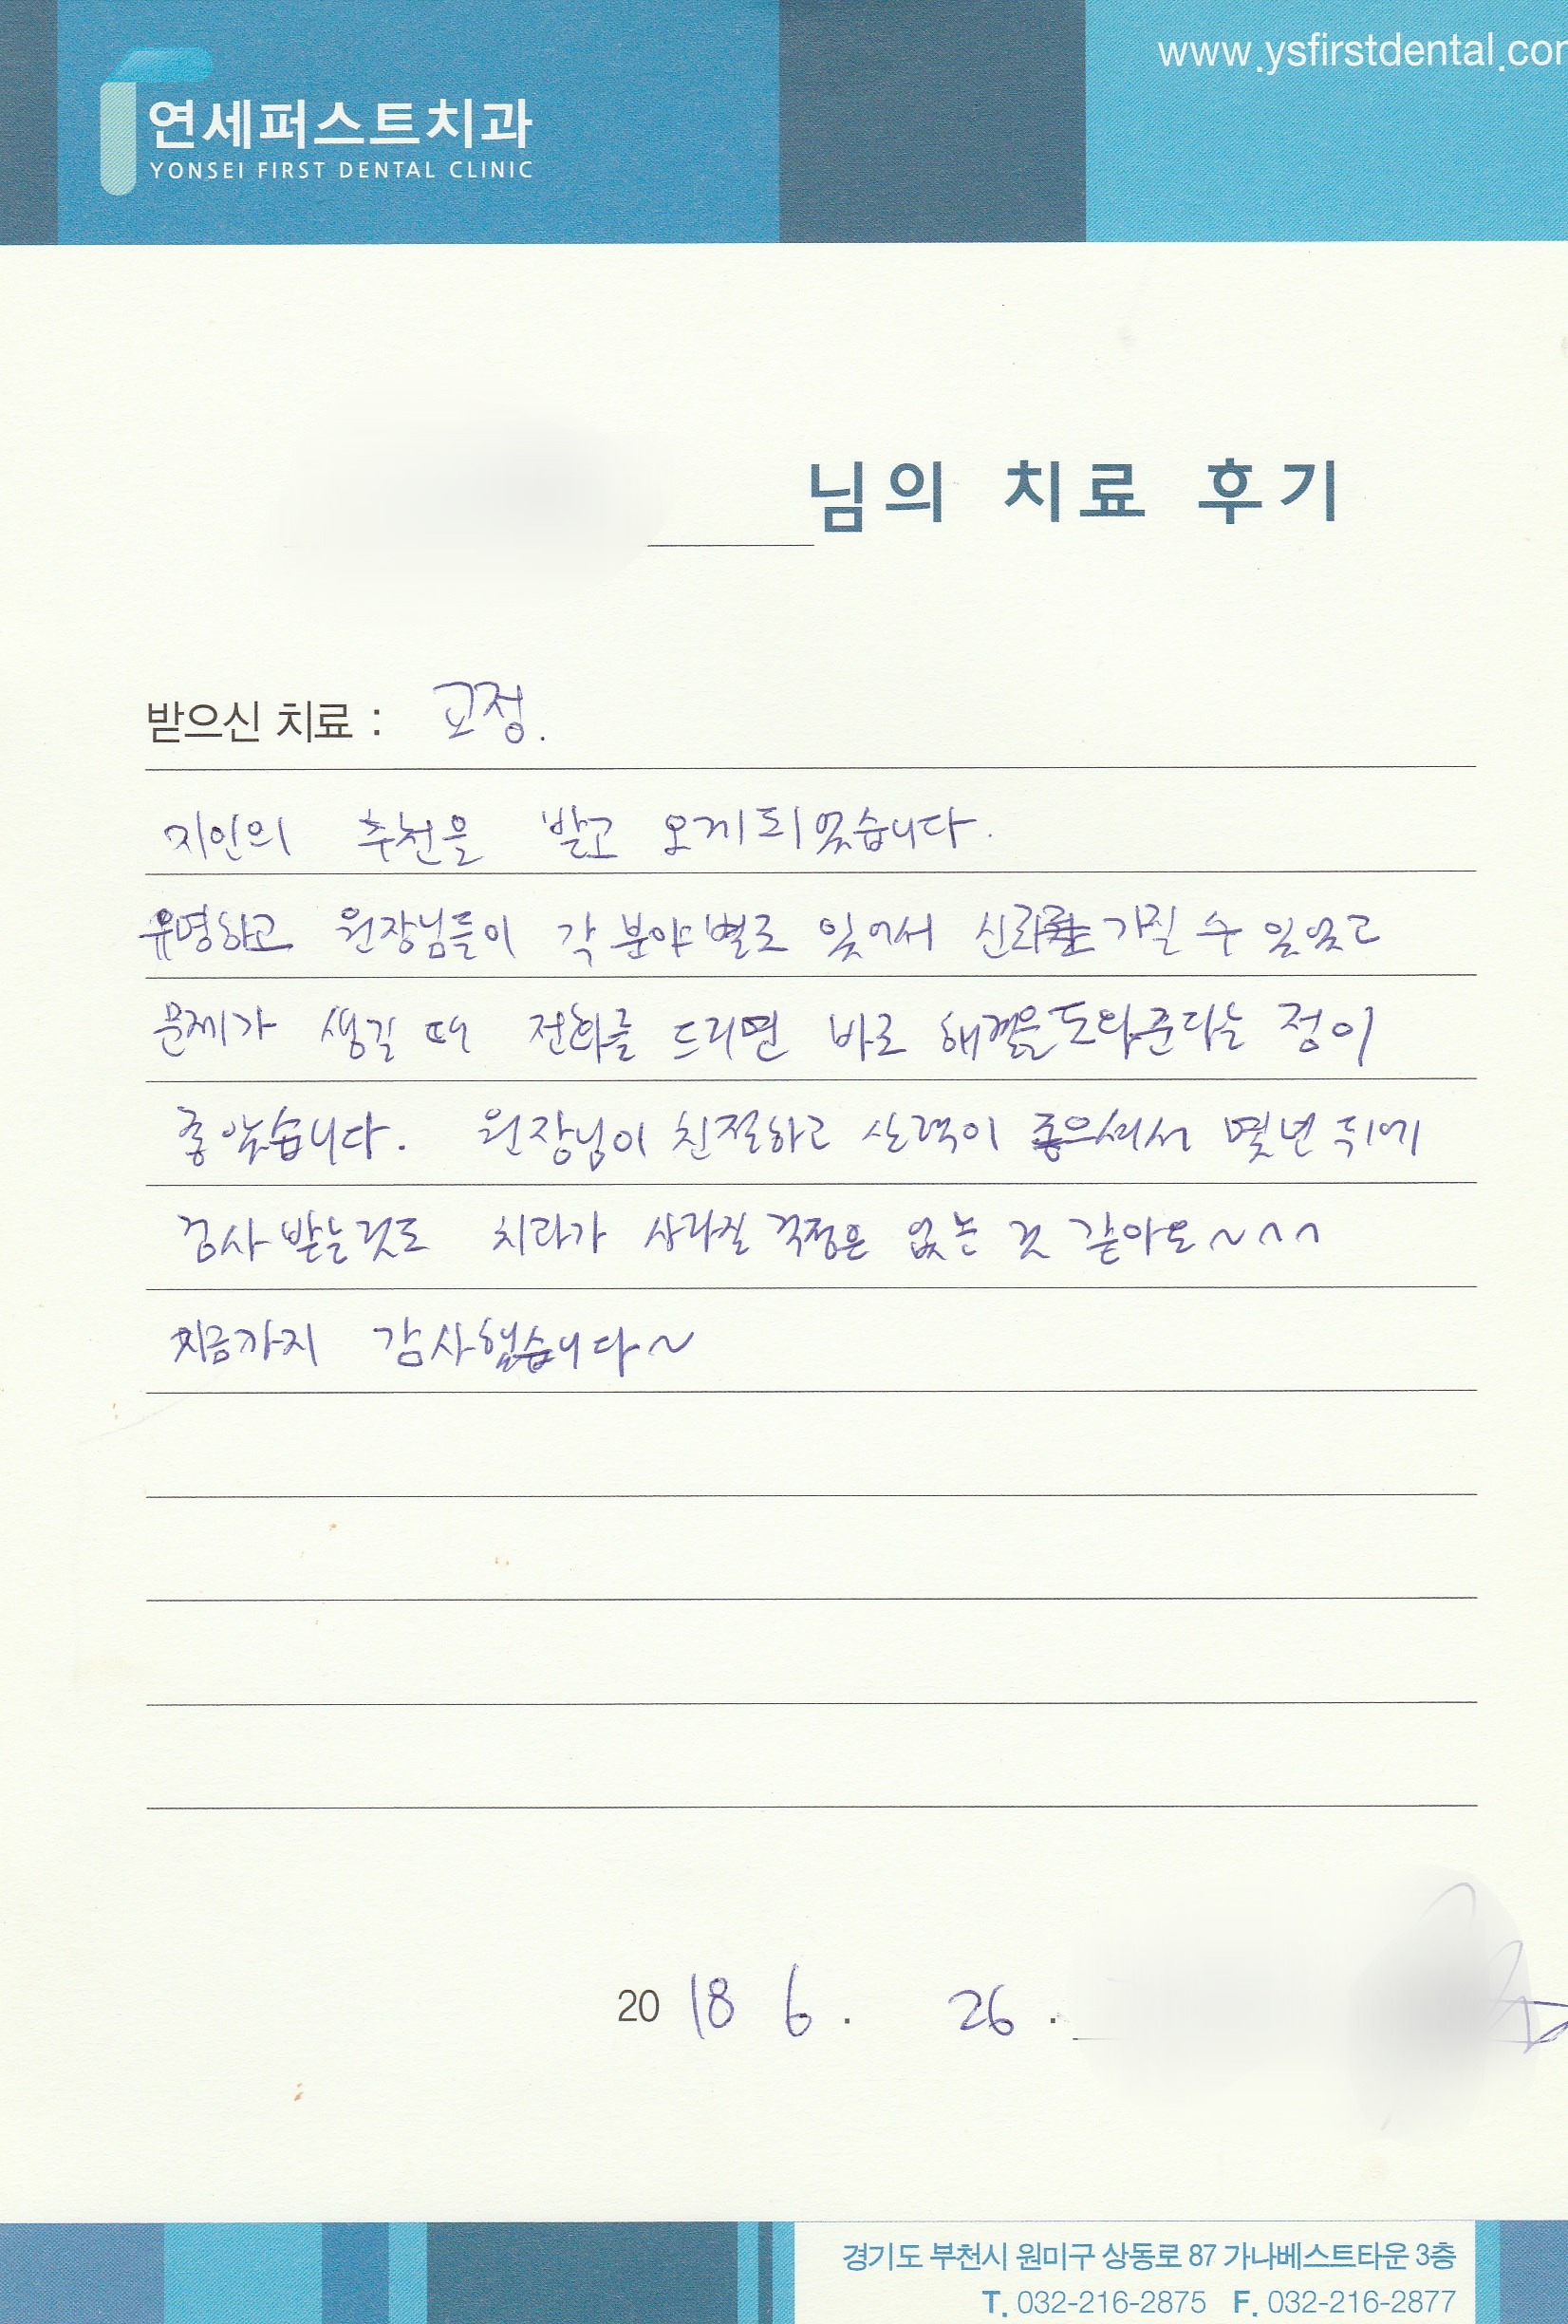 www.ysfirstdental.cor
연세퍼스트치과
YONSEI FIRST DENTAL CLINIC
님의 치료 후기
받으신 치료 : 교정.
지인의 추천을 받고 오게되었습니다.
유명하고 원장님들이 각 분야별로 있어서 신뢰를 가질 수 있었고
문제가 생길 때 전화를 드리면 바로 해결을 도와준다는 점이
좋았습니다. 원장님이 친절하고 실력이 좋으셔서 몇년 뒤에
검사 받는것도 치과가 사라질 걱정은 없는 것 같아요~^^
지금까지 감사했습니다~
20 18 6. 26.
경기도 부천시 원미구 상동로 87 가나베스트타운 3층
T. 032-216-2875 F. 032-216-2877